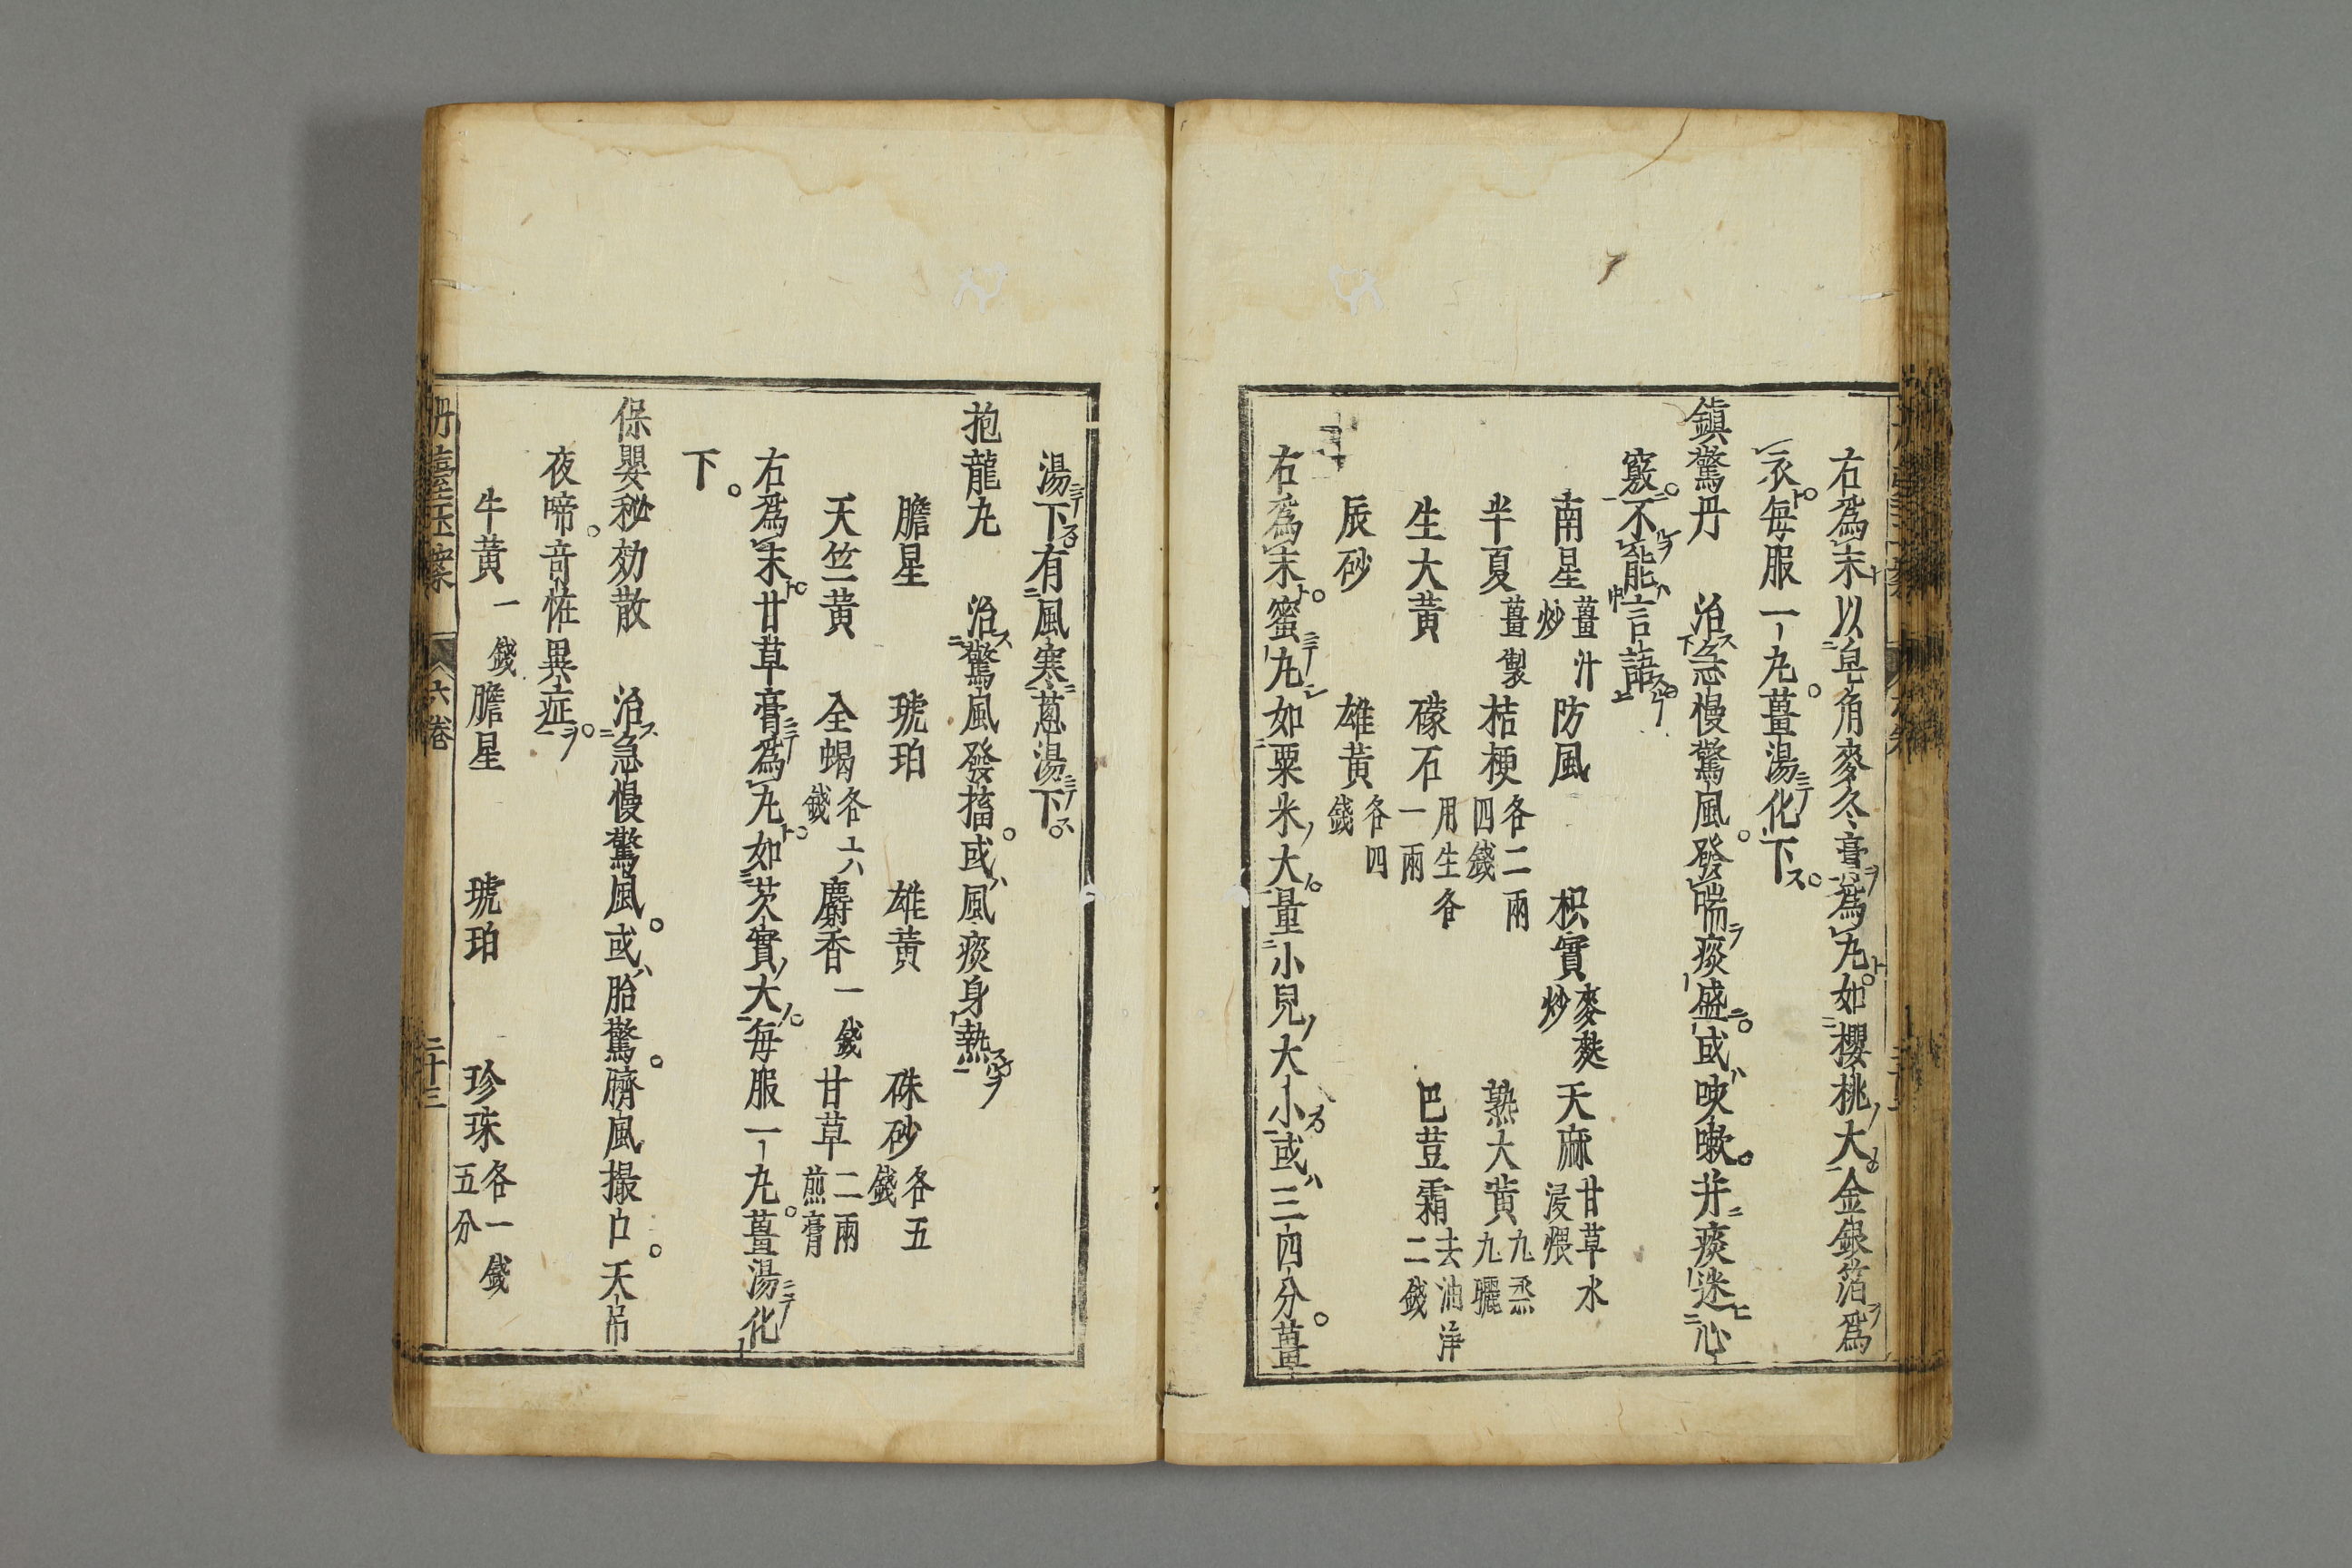 右為末以皂角麥冬膏為丸如櫻桃大金銀箔為
衣每服一丸薑湯化下
鎮驚丹 治急慢驚風發喘痰盛或咳嗽并痰迷心
竅不能言語
南星薑汁炒 防風 枳實麥麩炒 天麻甘草水浸煨
半夏薑製 桔梗各二兩四錢 熟大黃九烝九曬
生大黃 礞石用生各一兩 巴荳霜去油淨二錢
辰砂 雄黃各四錢
右為末蜜丸如粟米大量小兒大小或三四分薑
湯下有風寒蔥湯下
抱龍丸 治驚風發搐或風痰身熱
膽星 琥珀 雄黃 硃砂各五錢
天竺黃 全蝎各六錢 麝香一錢 甘草二兩煎膏
右為末甘草膏為丸如芡實大每服一丸薑湯化
下
保嬰秘効散 治急慢驚風或胎驚臍風撮口天吊
夜啼竒恠異症
牛黃一錢 膽星 琥珀 珍珠各一錢五分
丹臺玉案 六卷 二十三